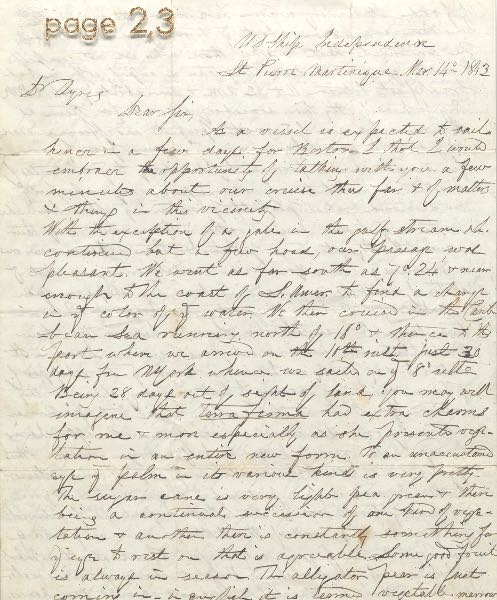 page 2,3
US Ship Independence
St Pierre Martinique Mar 14th 1843
Dr Ayres
Dear Sir,
As a vessel is expected to sail
hence in a few days for Boston I thot I would
embrace the opportunity of talking with you a few
minutes about our cruise thus far & of matters
& things in this vicinity
With the exception of a gale in the gulf stream wh.
continued but a few hours, our passage was
pleasant. We went as far south as 7° 24' & near
enough to the coast of S. Amer. to find a change
in color of water. We then cruised in the Carib-
bean Sea running north of 18° & thence to this
port where we arrived on the 10th inst just 30
days from NYork whence we sailed on 8th ulto
Being 28 days out of sight of land, you may well
imagine that terra firma had extra charms
for me & more especially as she presents vege-
tation in an entire new form. To an unaccustomed
eye palm in its various kinds is very pretty
The sugar cane is very light pea green & there
being a continual succession of one kind of vege-
tation & another there is constantly something for
eye to rest on that is agreeable. Some good fruit
is always in season. The alligator pear is just
coming in - in english it is termed vegetable marrow